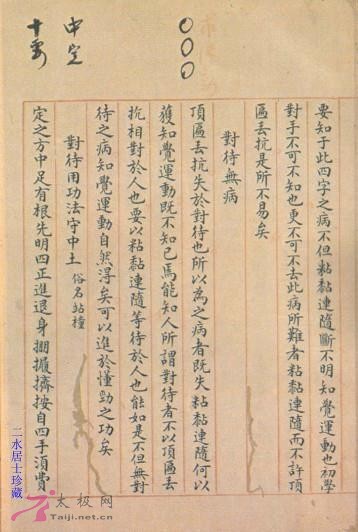 中定
十要
〇〇〇
要知于此四字之病不但粘黏連隨斷不明知覺運動也初學
對手不可不知也更不可不去此病所難者粘黏連隨而不許頂
匾丟抗是所不易矣
對待無病
頂匾丟抗失於對待也所以為之病者既失粘黏連隨何以
獲知覺運動既不知己焉能知人所謂對待者不以頂匾丟
抗相對於人也要以粘黏連隨等待於人也能如是不但無對
待之病知覺運動自然得矣可以進於懂勁之功矣
對待用功法守中土 俗名站橦
定之方中足有根先明四正進退身掤擴擠按自四手須費
二水居士珍藏
太极网
Taiji.net.cn